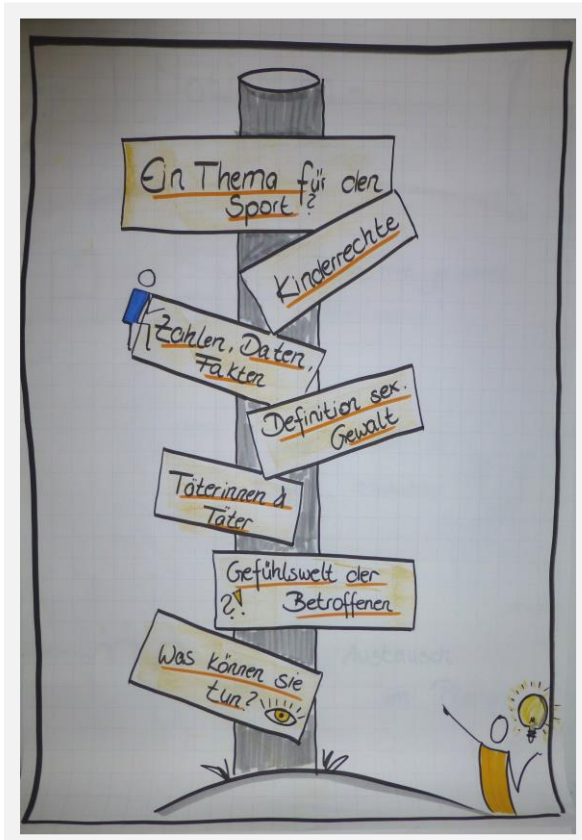 Ein Thema für den
Sport?
Kinderrechte
Zahlen, Daten,
Fakten
Definition sex.
Gewalt
Täterinnen &
Täter
Gefühlswelt der
?! Betroffenen
Was können sie
tun?
Austausch